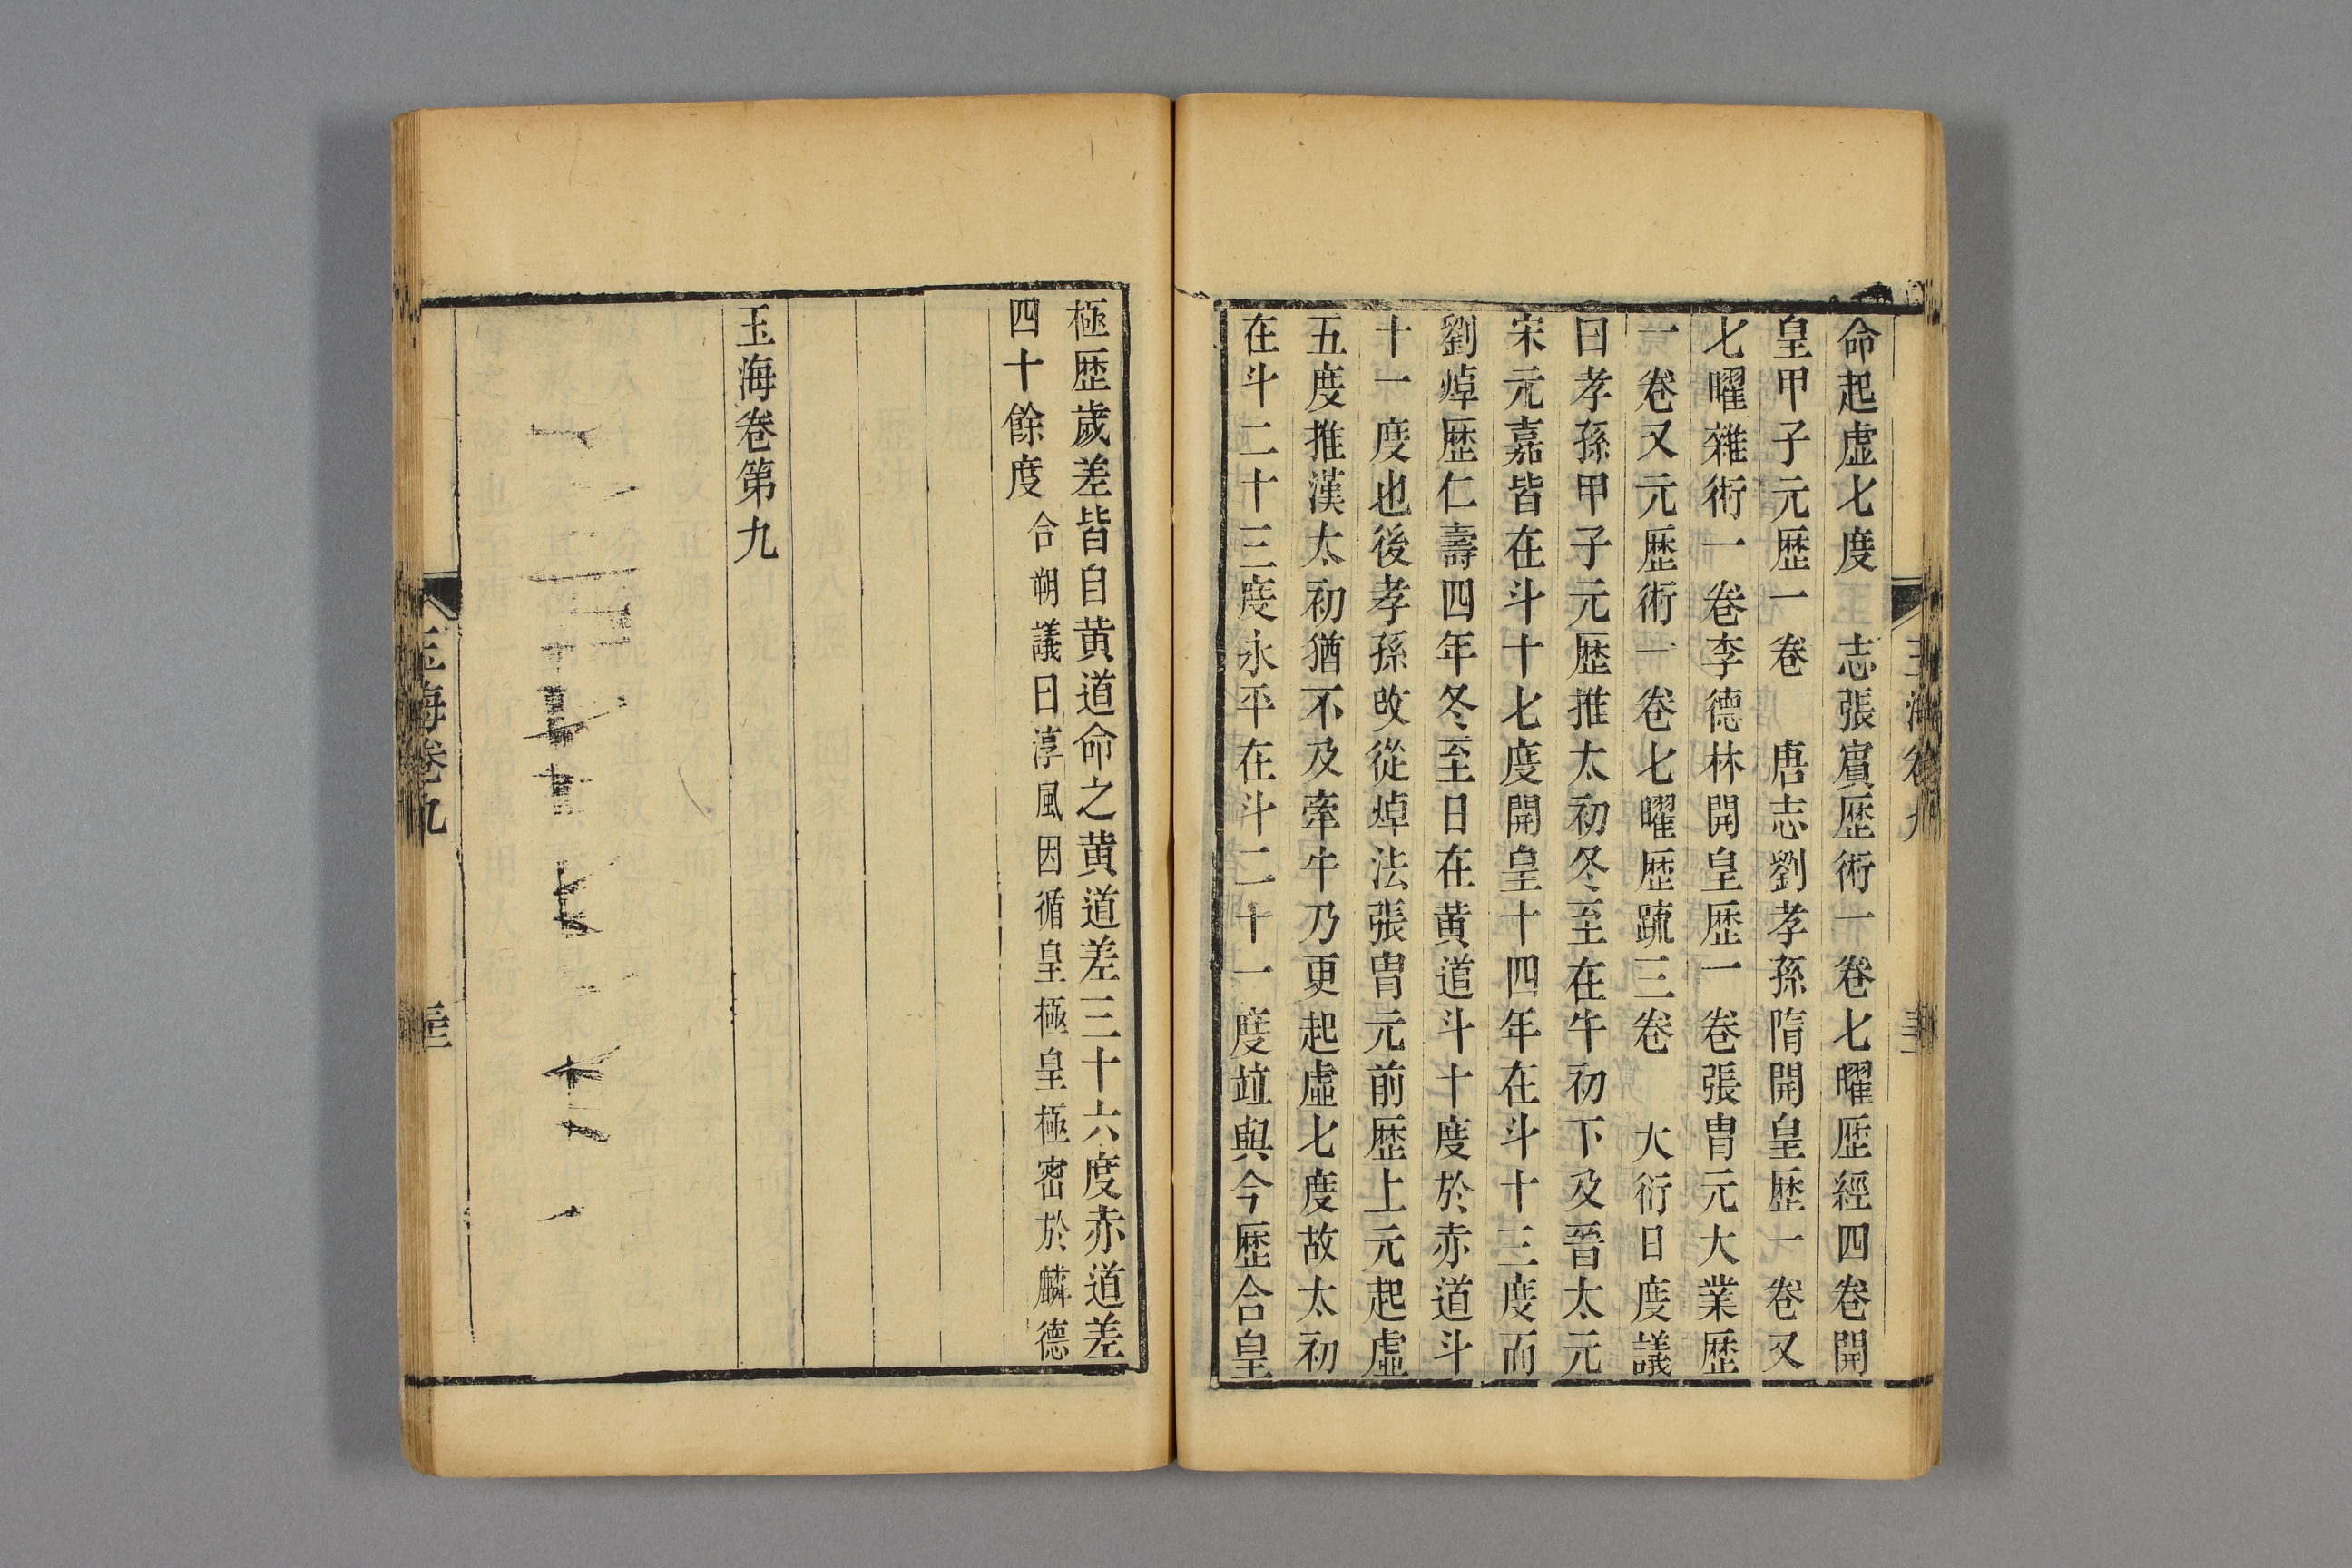 命起虚七度　志張賔歴術一卷七曜歴經四卷開
皇甲子元歴一卷　唐志劉孝孫隋開皇歴一卷又
七曜雜術一卷李德林開皇歴一卷張胄元大業歴
一卷又元歴術一卷七曜歴疏三卷　大衍日度議
曰孝孫甲子元歴推太初冬至在牛初下及晉太元
宋元嘉皆在斗十七度開皇十四年在斗十三度而
劉焯歴仁壽四年冬至日在黄道斗十度於赤道斗
十一度也後孝孫改從焯法張胄元前歴上元起虛
五度推漢太初猶不及牽牛乃更起虛七度故太初
在斗二十三度永平在斗二十一度竝與今歴合皇
極歴歲差皆自黄道命之黄道差三十六度赤道差
四十餘度合朔議曰淳風因循皇極皇極密於麟德
玉海卷第九
玉海卷九